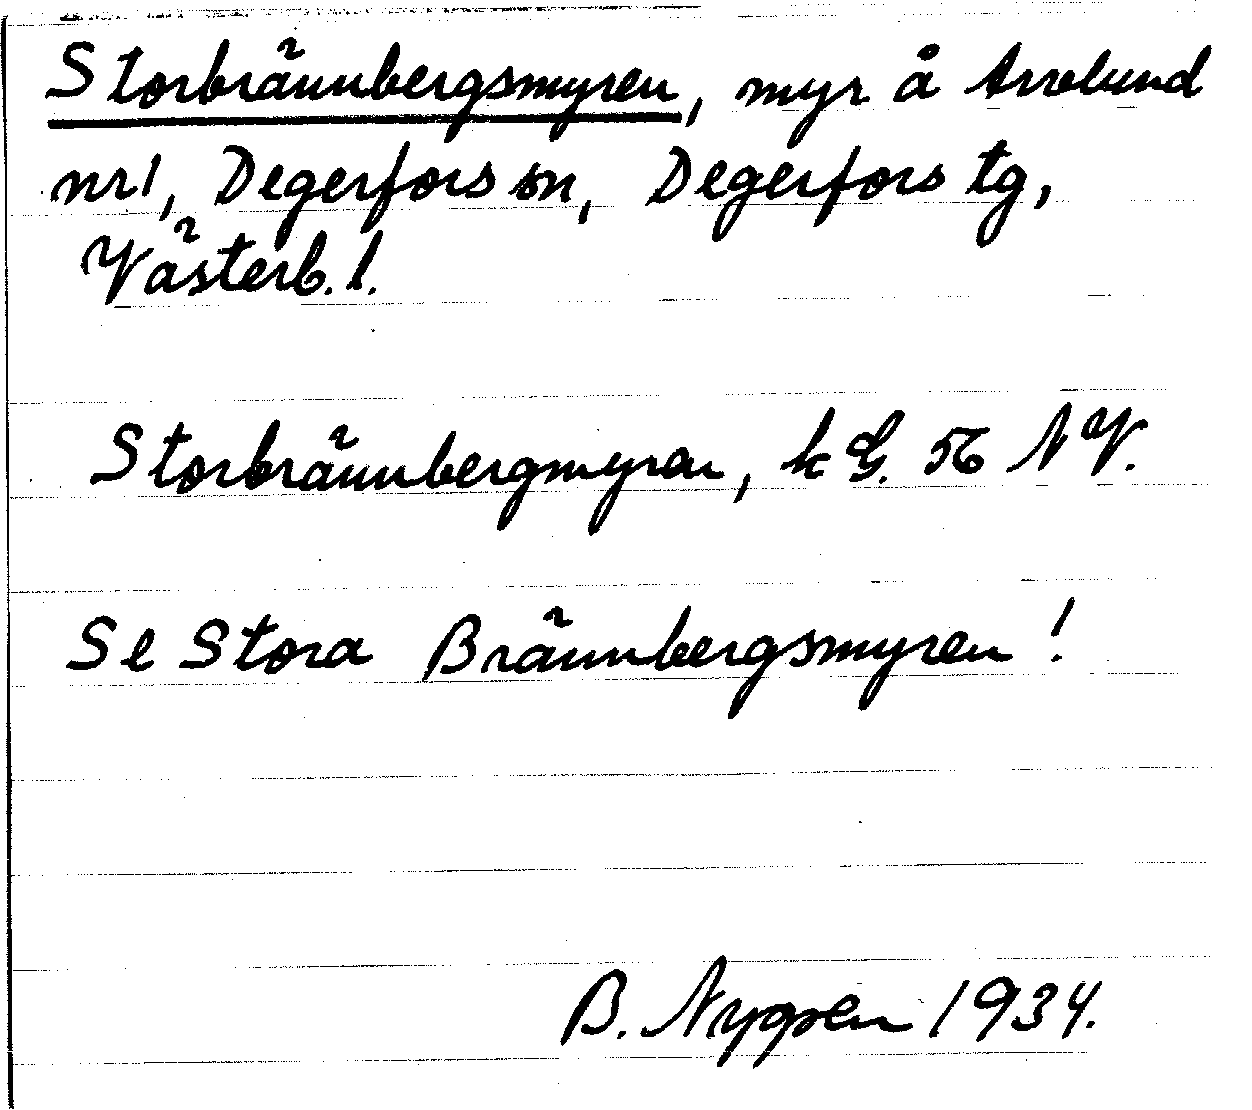 Storbrännbergsmyren, myr å Arvolund
nr 1, Degerfors sn, Degerfors tg,
Västerb. l.
Storbrännbergmyran, k G. 56 NV.
Se Stora Brännbergsmyren!
B. Nygren 1934.